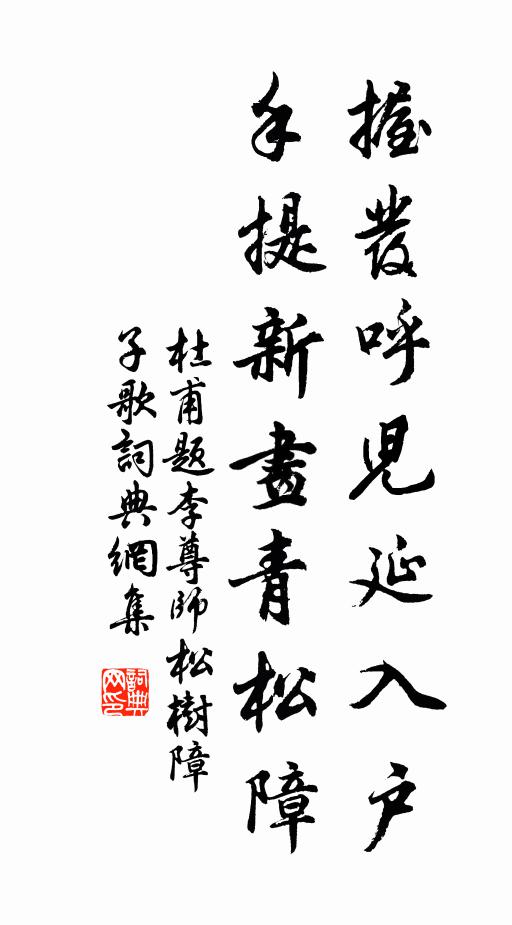 握發呼兒延入户
手提新畫青松障
杜甫題李尊師松樹障
子歌詞典網集
詞典
网印